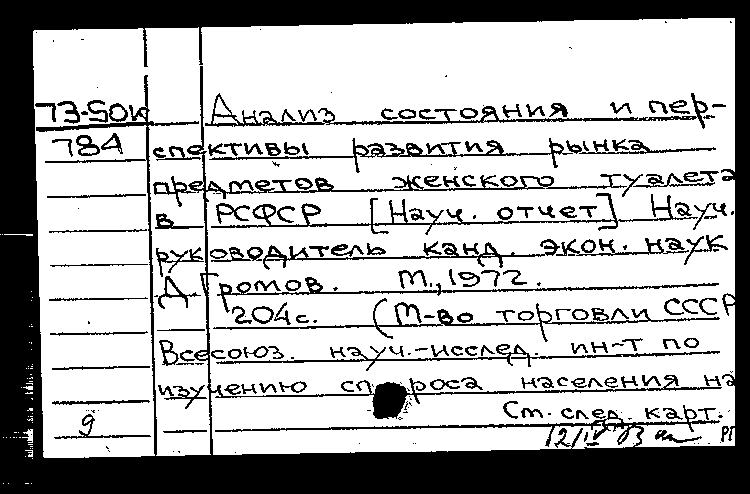 73-50к Анализ состояния и пер-
784 спективы развития рынка
предметов женского туалета
в РСФСР [Науч. отчет] Науч.
руководитель канд. экон. наук
Д. Громов. М., 1972.
204с. (М-во торговли СССР
Всесоюз. науч.-исслед. ин-т по
изучению спроса населения на
См. след. карт.
9
12/IV 73